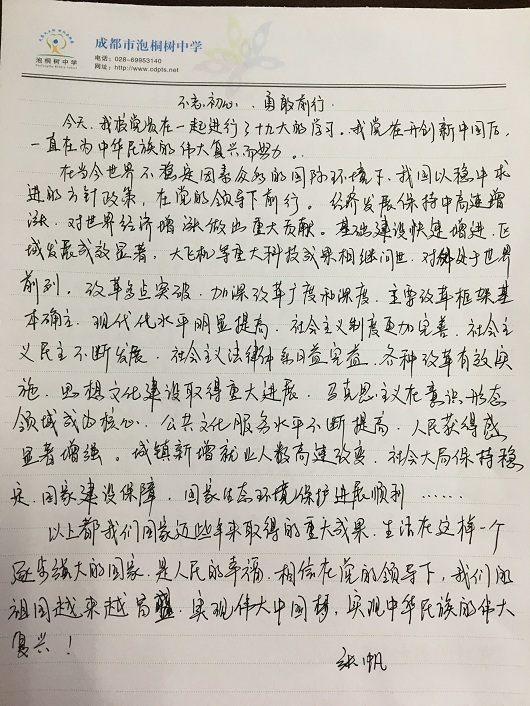 成都市泡桐树中学
泡桐树中学
电话：028-69953140
网址：http://www.cdpts.net
不忘初心，勇敢前行.
今天，我校党员在一起进行了十九大的学习。我党在开创新中国后，
一直在为中华民族的伟大复兴而努力。
在当今世界不稳定因素众多的国际环境下，我国以稳中求
进的方针政策，在党的领导下前行。经济发展保持中高速增
涨，对世界经济增涨做出重大贡献。基础建设快速增进，区
域发展成效显著，大飞机等重大科技成果相继问世，对外处于世界
前列。改革多点突破，加深改革广度和深度，主要改革框架基
本确立，现代化水平明显提高，社会主义制度更加完善，社会主
义民主不断发展，社会主义法律体系日益完益，各种改革有效实
施，思想文化建设取得重大进展，马克思主义在意识形态
领域成为核心，公共文化服务水平不断提高，人民获得感
显著增强。城镇新增就业人数高速改变，社会大局保持稳
定，国家建设保障，国家生态环境保护进展顺利……
以上都我们国家近些年来取得的重大成果，生活在这样一个
逐步强大的国家，是人民的幸福，相信在党的领导下，我们的
祖国越来越昌盛，实现伟大中国梦，实现中华民族的伟大
复兴！
张帆